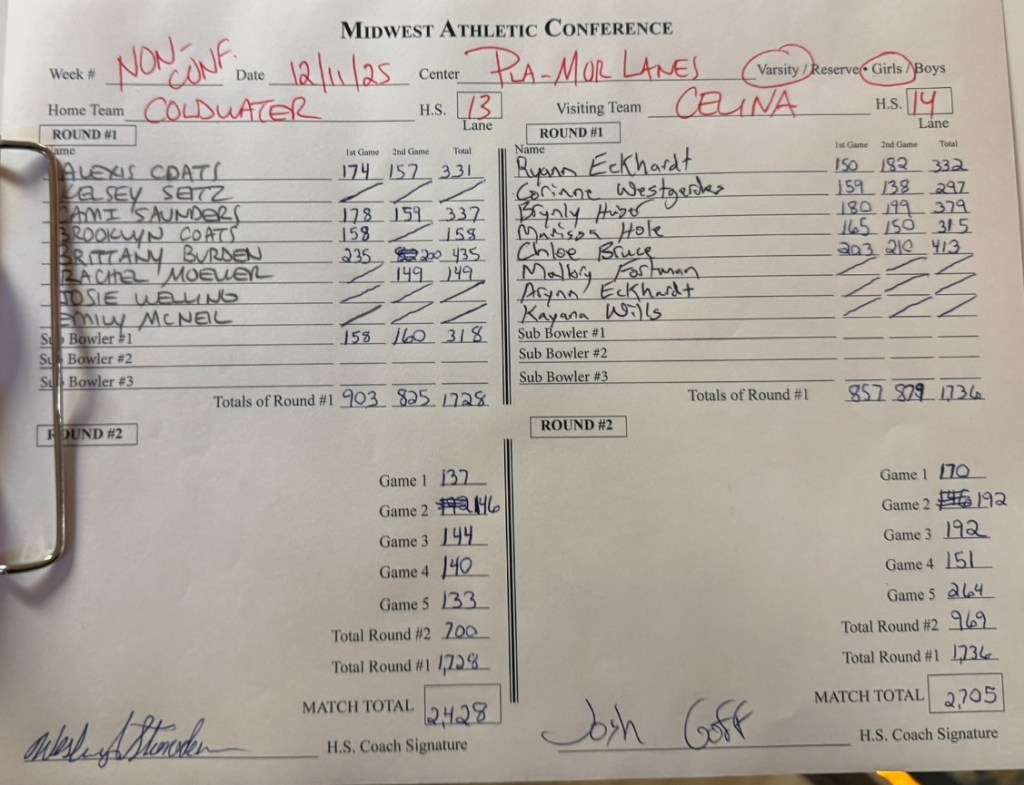 MIDWEST ATHLETIC CONFERENCE
Week # NON-CONF. Date 12/11/25 Center PLA-MOR LANES Varsity / Reserve • Girls / Boys
Home Team COLDWATER H.S. 13 Lane
Visiting Team CELINA H.S. 14 Lane
ROUND #1
Name 1st Game 2nd Game Total
ALEXIS COATS 174 157 331
KELSEY SEITZ / / /
CAMI SAUNDERS 178 159 337
BROOKLYN COATS 158 / 158
BRITTANY BURDEN 235 200 435
RACHEL MOELLER / 149 149
JOSIE WELLING / / /
EMILY MCNEIL / / /
Sub Bowler #1 158 160 318
Sub Bowler #2
Sub Bowler #3
Totals of Round #1 903 825 1728
ROUND #1
Name 1st Game 2nd Game Total
Ryann Eckhardt 150 182 332
Corinne Westgerdes 159 138 297
Brynly Huser 180 199 379
Marissa Hole 165 150 315
Chloe Bruce 203 210 413
Mallory Fortman / / /
Arynn Eckhardt / / /
Kayana Wills / / /
Sub Bowler #1
Sub Bowler #2
Sub Bowler #3
Totals of Round #1 857 879 1,736
ROUND #2
Game 1 137
Game 2 146
Game 3 144
Game 4 140
Game 5 133
Total Round #2 700
Total Round #1 1,728
MATCH TOTAL 2,428
H.S. Coach Signature
ROUND #2
Game 1 170
Game 2 192
Game 3 192
Game 4 151
Game 5 264
Total Round #2 969
Total Round #1 1,736
MATCH TOTAL 2,705
Josh Goff H.S. Coach Signature